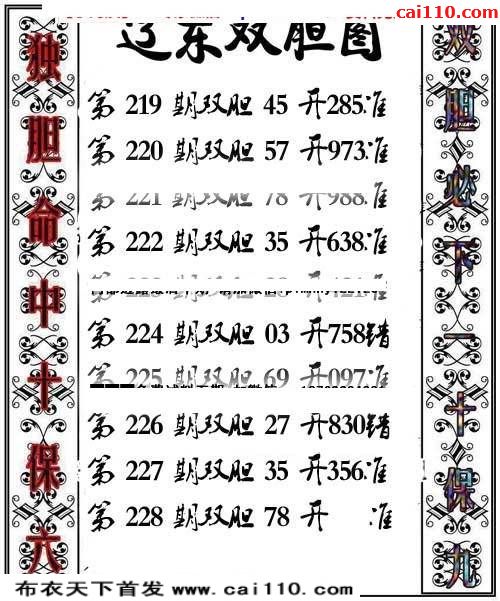 cai110.com
辽东双胆图
独胆命中十保六
双胆必下一十保九
第 219 期双胆 45 开285准
第 220 期双胆 57 开973准
第 221 期双胆 78 开988准
第 222 期双胆 35 开638准
第 224 期双胆 03 开758错
第 225 期双胆 69 开097准
第 226 期双胆 27 开830错
第 227 期双胆 35 开356准
第 228 期双胆 78 开 准
布衣天下首发 www.cai110.com